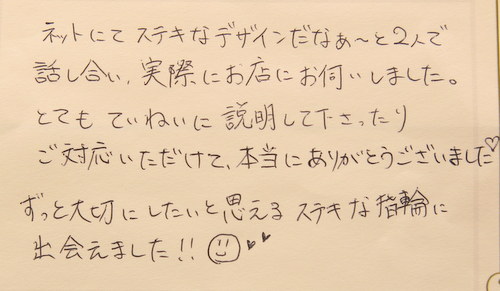 ネットにて ステキなデザインだなぁ〜と2人で
話し合い、実際にお店にお伺いしました。
とても ていねいに 説明して下さったり
ご対応いただけて、本当にありがとうございました♡
ずっと大切にしたいと思える ステキな指輪に
出会えました!!